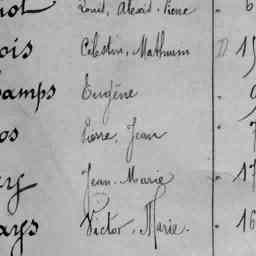 not Louis, Alexis. Pierre 6
ois Celestin, Mathurin D 15
hamps Eugène
os Pierre, Jean 7
Jean. Marie 17
ays Victor, Marie. 16